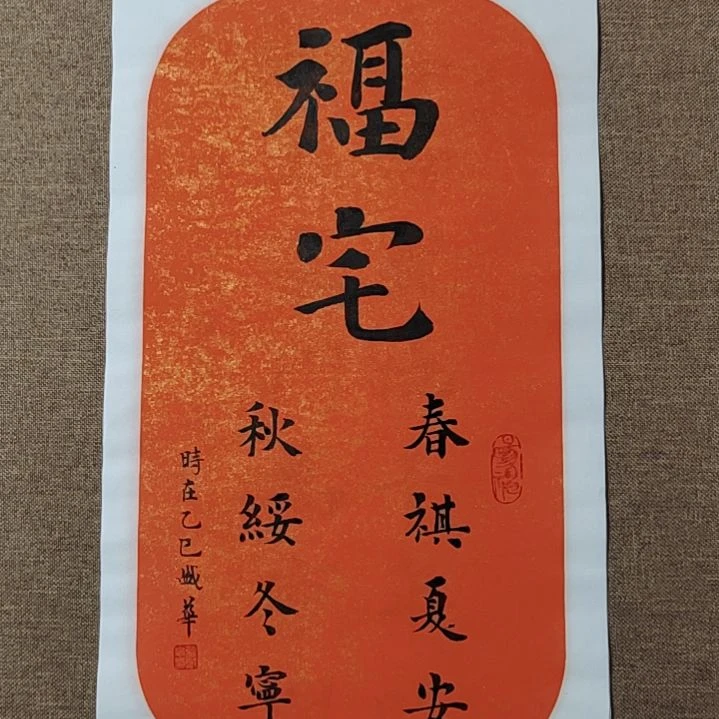 福宅
春祺夏安
秋綏冬寧
時在乙巳
華